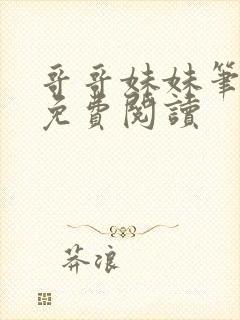 哥哥妹妹筆
免費閱讀
莽浪